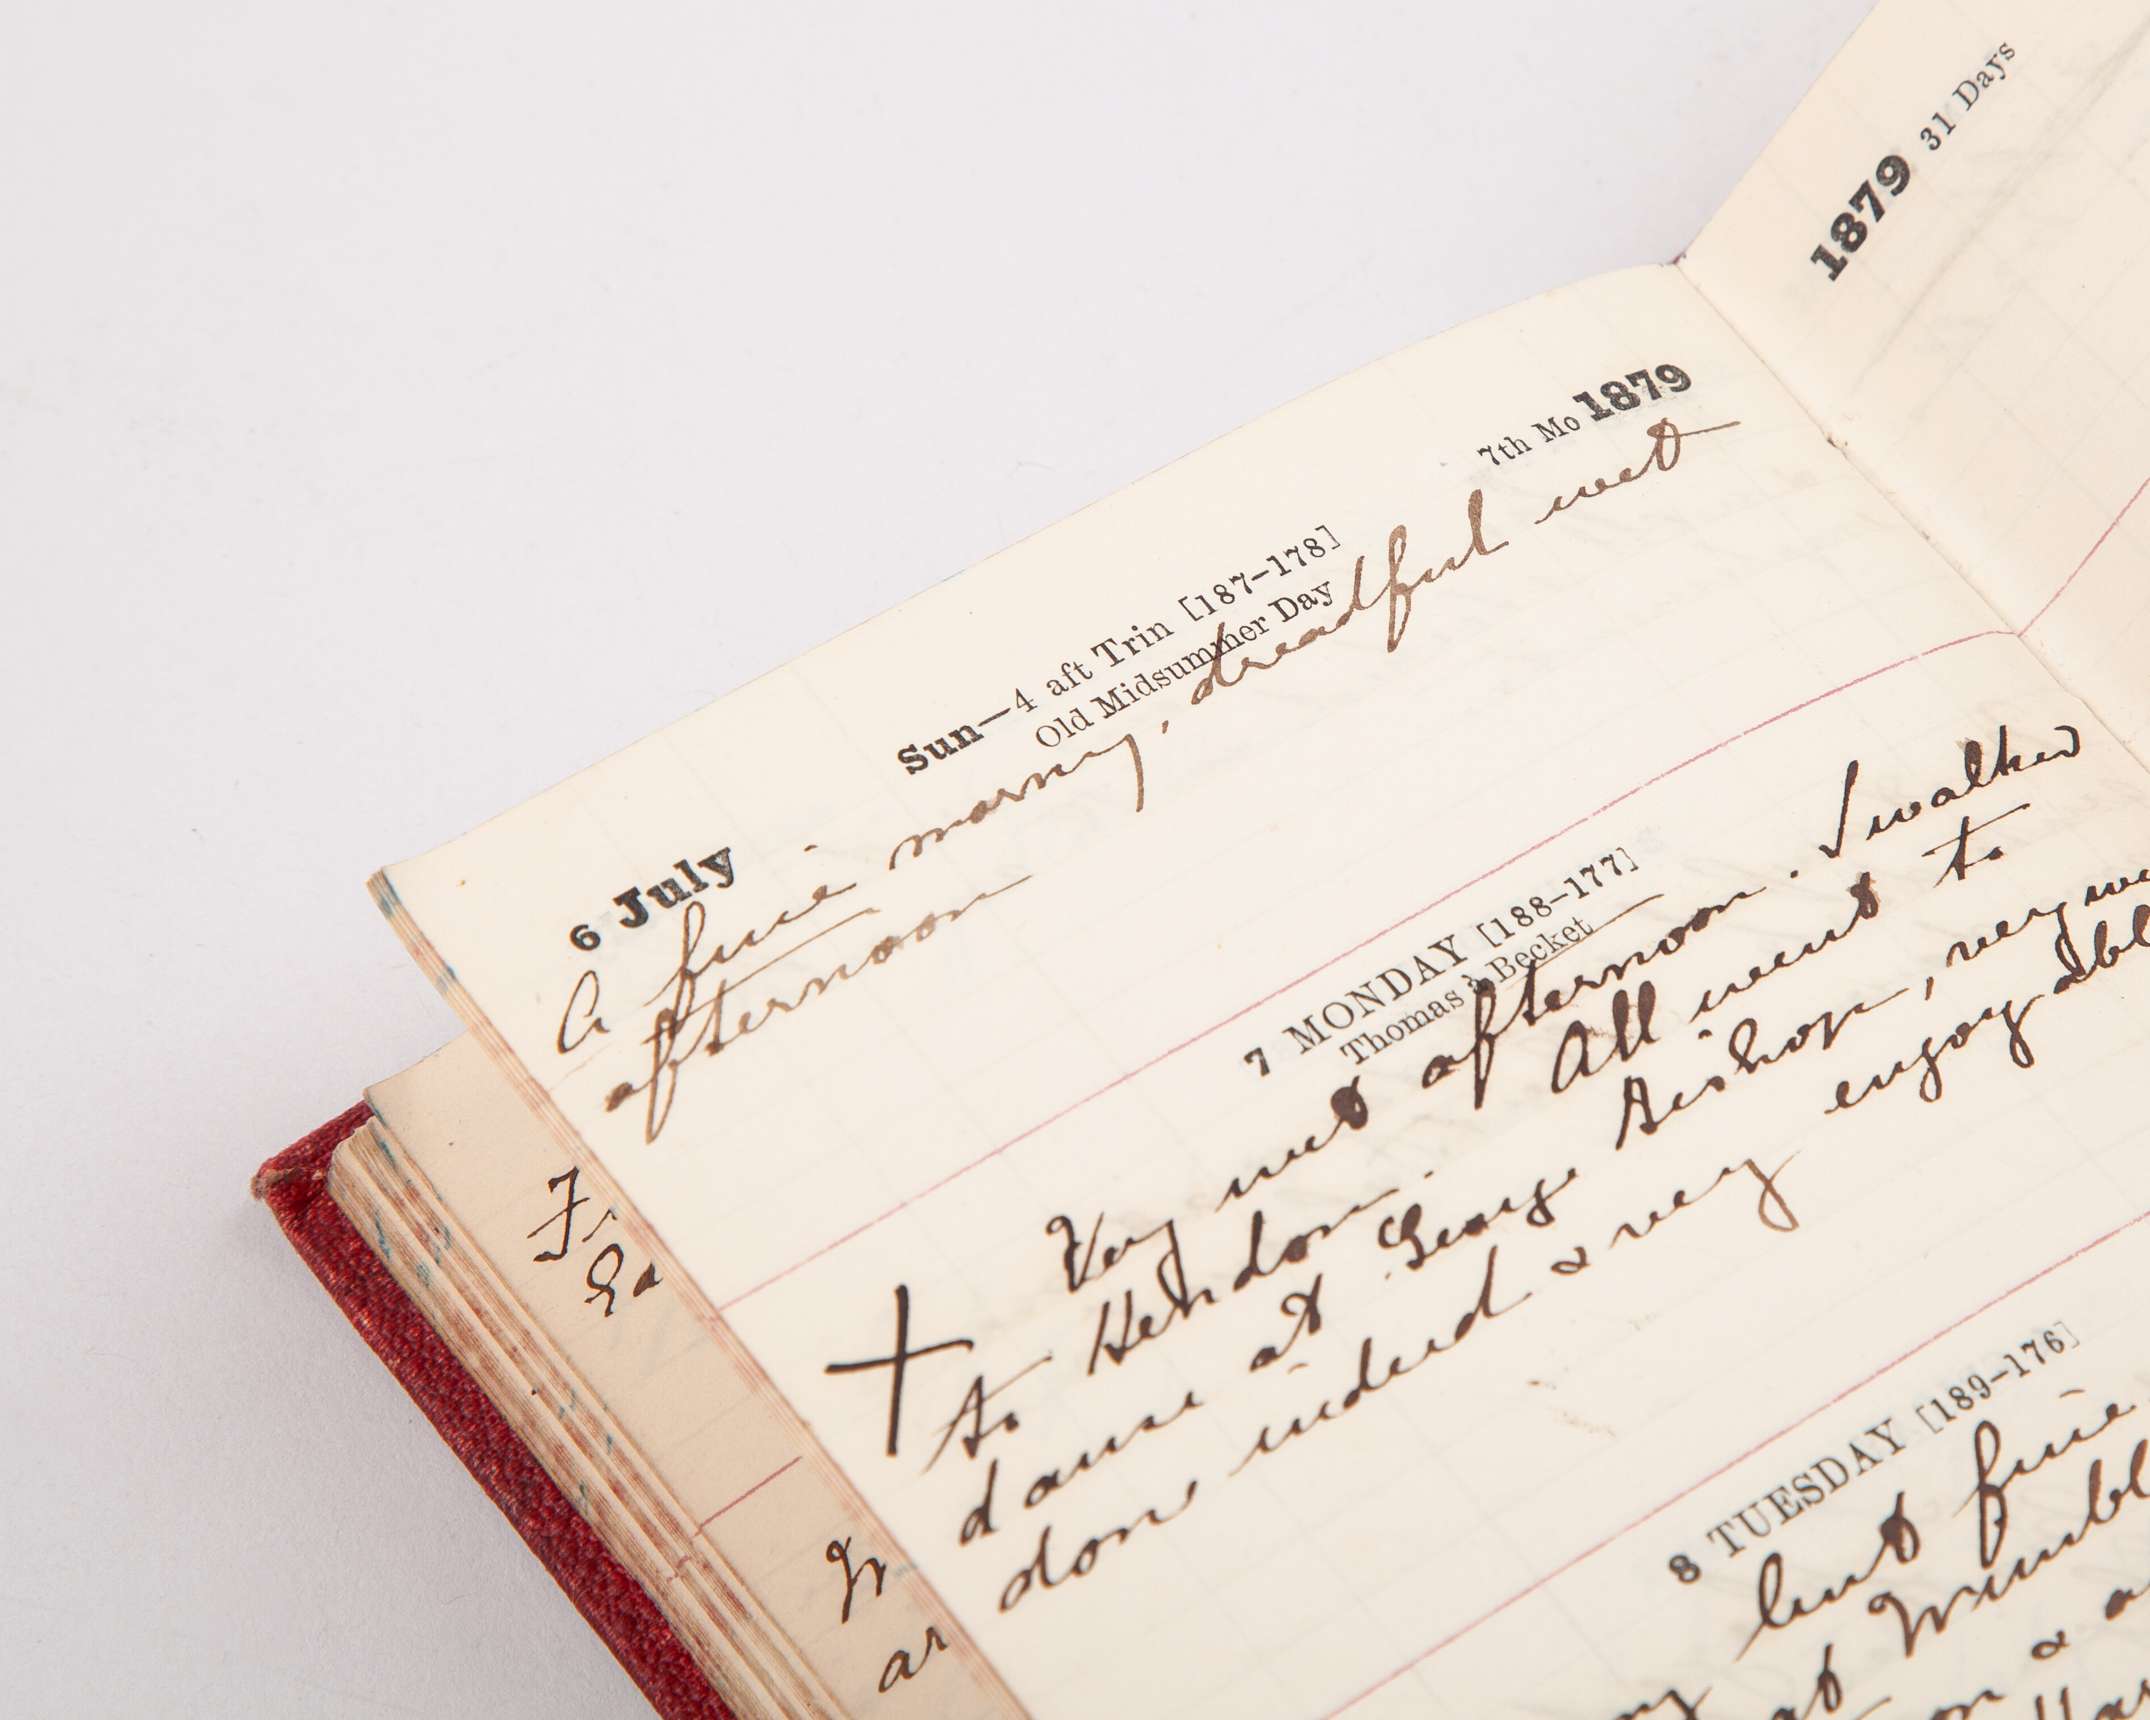 1879 31 Days
6 July Sun—4 aft Trin [187–178] 7th Mo 1879
Old Midsummer Day
A fine morning, dreadful wet
afternoon
7 MONDAY [188–177]
Thomas à Becket
Very wet afternoon. I walked
to Hendon. All went to
dance at George Bishop, very
done indeed & very enjoyabl
8 TUESDAY [189–176]
but fine
at Wimbl
on & a
Fr
Sa
ar